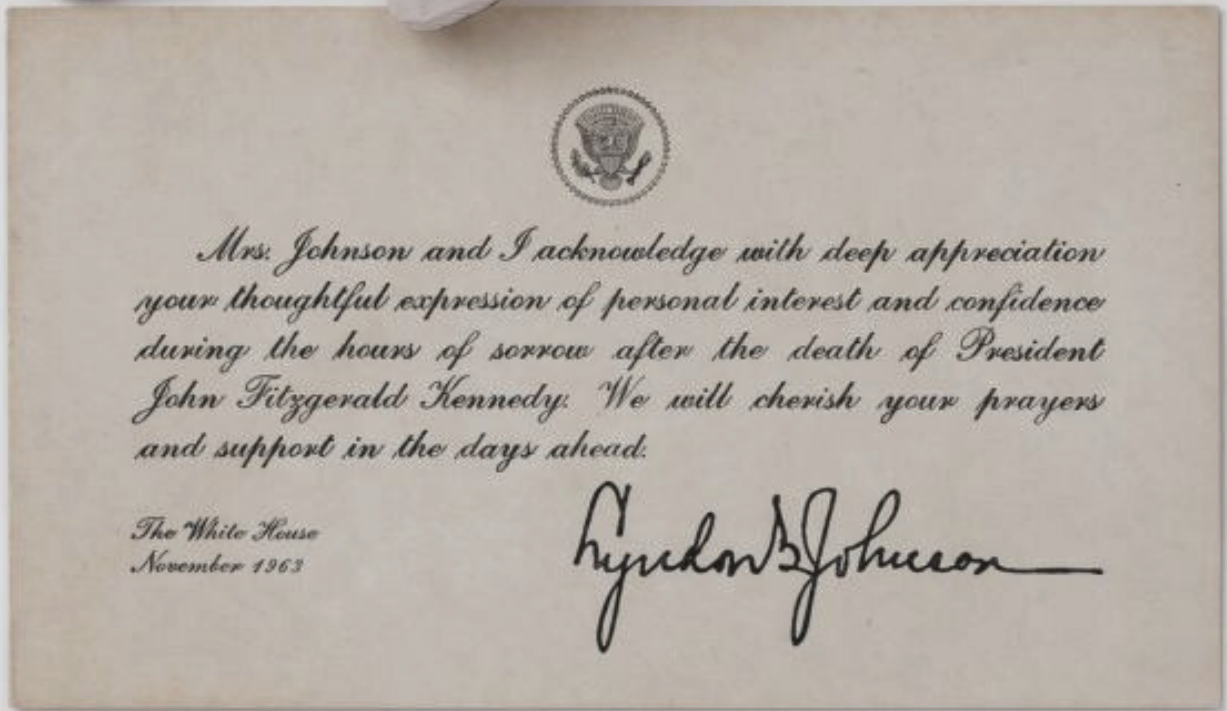 Mrs. Johnson and I acknowledge with deep appreciation
your thoughtful expression of personal interest and confidence
during the hours of sorrow after the death of President
John Fitzgerald Kennedy. We will cherish your prayers
and support in the days ahead.
The White House
November 1963
Lyndon B Johnson